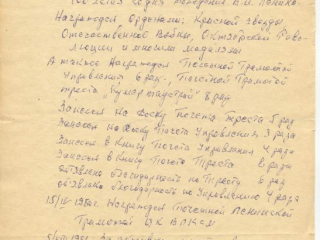 100 летия со дня рождения В.И. Ленина.
Награжден Орденами: Красной звезды
Отечественной Войны, Октябрской Рево-
люции и многими медалями
А также Награжден Почетной Грамотой
Управления 6 раз, Почетной Грамотой
треста 8 раз
Занесен на доску почета треста 5 раз
Занесен на доску Почета Управления 3 раза
Занесен в Книгу Почета Управления 4 раза
Занесен в Книгу Почета Треста 2 раза
объявлено благодарность по Тресту 6 раз
объявлено благодарность по Управлению 4 раза
Награжден Почетной Ленинской
Грамотой ЦК ВЛКСМ